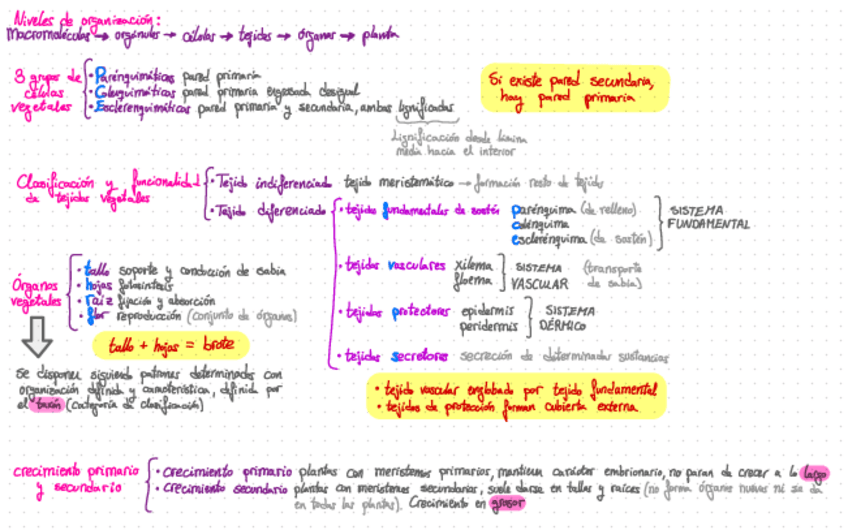 Niveles de organización:
Macromoléculas → orgánulos → células → tejidos → órganos → planta
3 grupos de células vegetales
• Parénquimáticas pared primaria
• Colenquimáticas pared primaria engrosada desigual
• Esclerenquimáticas pared primaria y secundaria, ambas lignificadas
Lignificación desde lámina
media hacia el interior
Si existe pared secundaria,
hay pared primaria
Clasificación y funcionalidad
de tejidos vegetales
• Tejido indiferenciado tejido meristemático → formación resto de tejidos
• Tejido diferenciado
• tejidos fundamentales de sostén
parénquima (de relleno)
colénquima
esclerénquima (de sostén)
SISTEMA
FUNDAMENTAL
• tejidos vasculares
xilema
floema
SISTEMA
VASCULAR
(transporte
de sabia)
• tejidos protectores
epidermis
peridermis
SISTEMA
DÉRMICO
• tejidos secretores secreción de determinadas sustancias
Órganos
vegetales
• tallo soporte y conducción de sabia
• hojas fotosíntesis
• raíz fijación y absorción
• flor reproducción (conjunto de órganos)
tallo + hojas = brote
se disponen siguiendo patrones determinados con
organización definida y característica, definida por
el taxón (categoría de clasificación)
• tejido vascular englobado por tejido fundamental
• tejidos de protección forman cubierta externa
crecimiento primario
y secundario
• crecimiento primario plantas con meristemos primarios, mantienen carácter embrionario, no paran de crecer a lo largo
• crecimiento secundario plantas con meristemos secundarios, suele darse en tallos y raíces (no forma órganos nuevos ni se da
en todas las plantas). Crecimiento en grosor